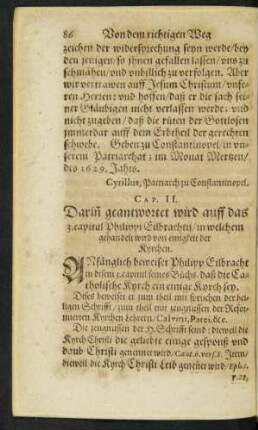 86 Von dem richtigen Weg
zeichen der widersprechung seyn werde/ bey
den jenigen/ so ihnen gefallen lassen/ uns zu
schmähen/ und unbillich zu verfolgen. Aber
wir vertrawen auff Jesum Christum/ unse-
ren Herren: und hoffen/ daß er die sach sei-
ner Gläubigen nicht verlassen werde: und
nicht zugeben/ daß die rüten der Gottlosen
immerdar auff dem Erbtheil der gerechten
schwebe. Geben zu Constantinopel/ in un-
serem Patriarchat: im Monat Mertzen/
des 1629. Jahrs.
Cyrillus, Patriarch zu Constantinopel.
CAP. II.
Dariñ geantwortet wird auff das
3. capitul Philippi Eilbrachtii/ in welchem
gehandelt wird von einigkeit der
Kyrchen.
ANfänglich beweiset Philipp Eilbracht
in diesem 3. capitul seines Buchs/ daß die Ca-
tholische Kyrch ein einige Kyrch sey.
Dieses beweiset er zum theil mit sprüchen der hei-
ligen Schrifft/ zum theil mit zeugnussen der Refor-
mierten Kyrchen Lehrern/ Calvini, Parei, &c.
Die zeugnussen der H. Schrifft seind: dieweil die
Kyrch Christi die geliebte einige gespons und
daub Christi genennet wird/ Cant. 6. vers. 8. Item/
dieweil die Kyrch Christi Leib genennet wird/ Ephes.